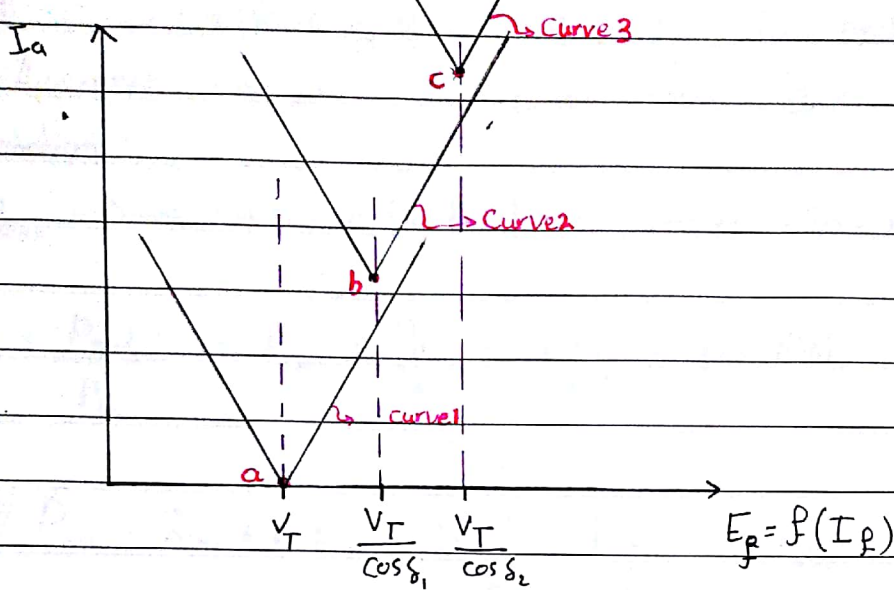 Curve 3
Ia
c
Curve2
b
curve1
a
V_T
V_T/cosδ₁
V_T/cosδ₂
E_f = f(I_f)